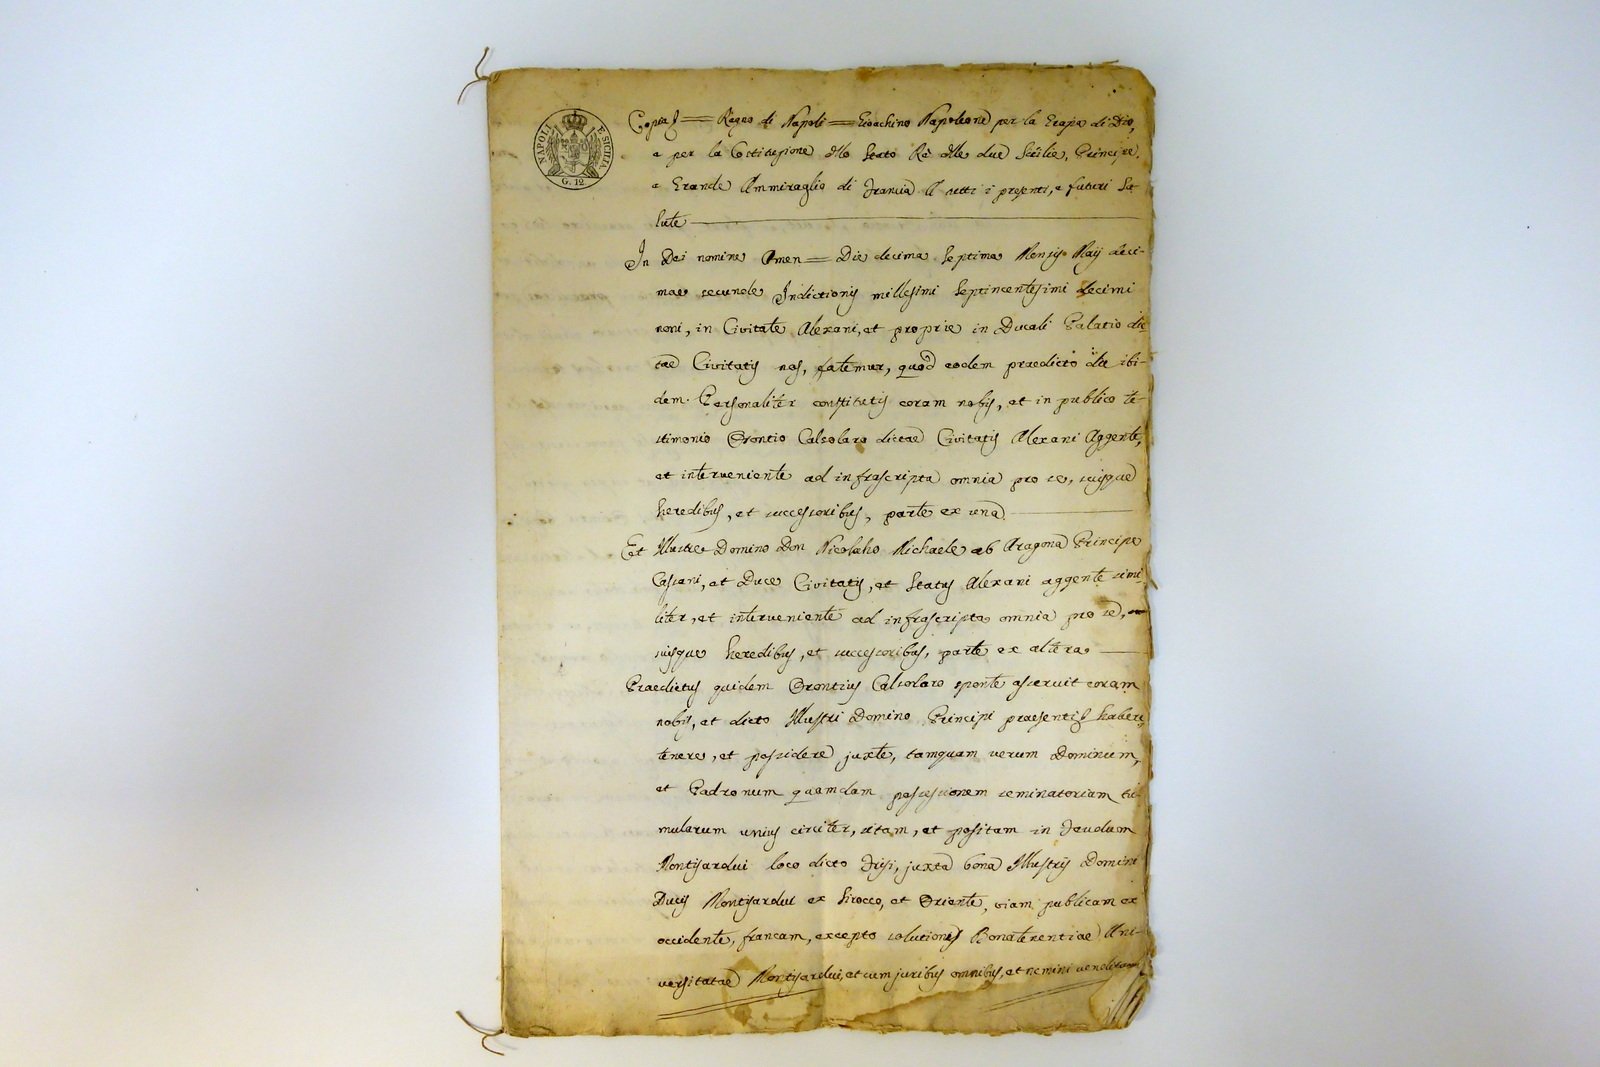 NAPOLI E SICILIA
G. 12.
Copia = Regno di Napoli = Gioachino Napoleone per la Grazia di Dio,
e per la Costituzione dello Stato Rè delle due Sicilie, Principe,
e Grande Ammiraglio di Francia A tutti i presenti, e futuri Sa-
lute
In Dei nomine Amen = Die decima septima Mensis Maij deci-
mae secundae Indictionis millesimi septincentesimi decimi
noni, in Civitate Alexani, et proprie in Ducali Palatio dic-
tae Civitatis nos, fatemur, quod eodem praedicto die ibi-
dem. Personaliter constitutis coram nobis, et in publico te-
stimonio Orontio Calsolaro dictae Civitatis Alexani Aggente,
et interveniente ad infrascripta omnia pro se, suisque
heredibus, et successoribus, parte ex una
Et Illustre Domino Don Nicolaho Michaele ab Aragona Principe
Cassani, et Duce Civitatis, et Status Alexani aggente simi-
liter, et interveniente ad infrascripta omnia pro se,
suisque heredibus, et successoribus, parte ex altera
Praedictus quidem Orontius Calsolaro sponte asseruit coram
nobis, et dicto Illustri Domino Principi praesenti habere,
tenere, et possidere juxte, tamquam verum Dominum,
et Padronum quamdam possessionem seminatoriam tu-
mularum unius circiter, sitam, et positam in Feudum
Montisardui loco dicto Frisi, juxta bona Illustris Domini
Ducis Montisardui ex Sirocco, et Oriente, viam publicam ex
occidente, francam, excepto solutionis Bonatenentiae Uni-
versitatae Montisardui, et cum juribus omnibus, et nemini venditam